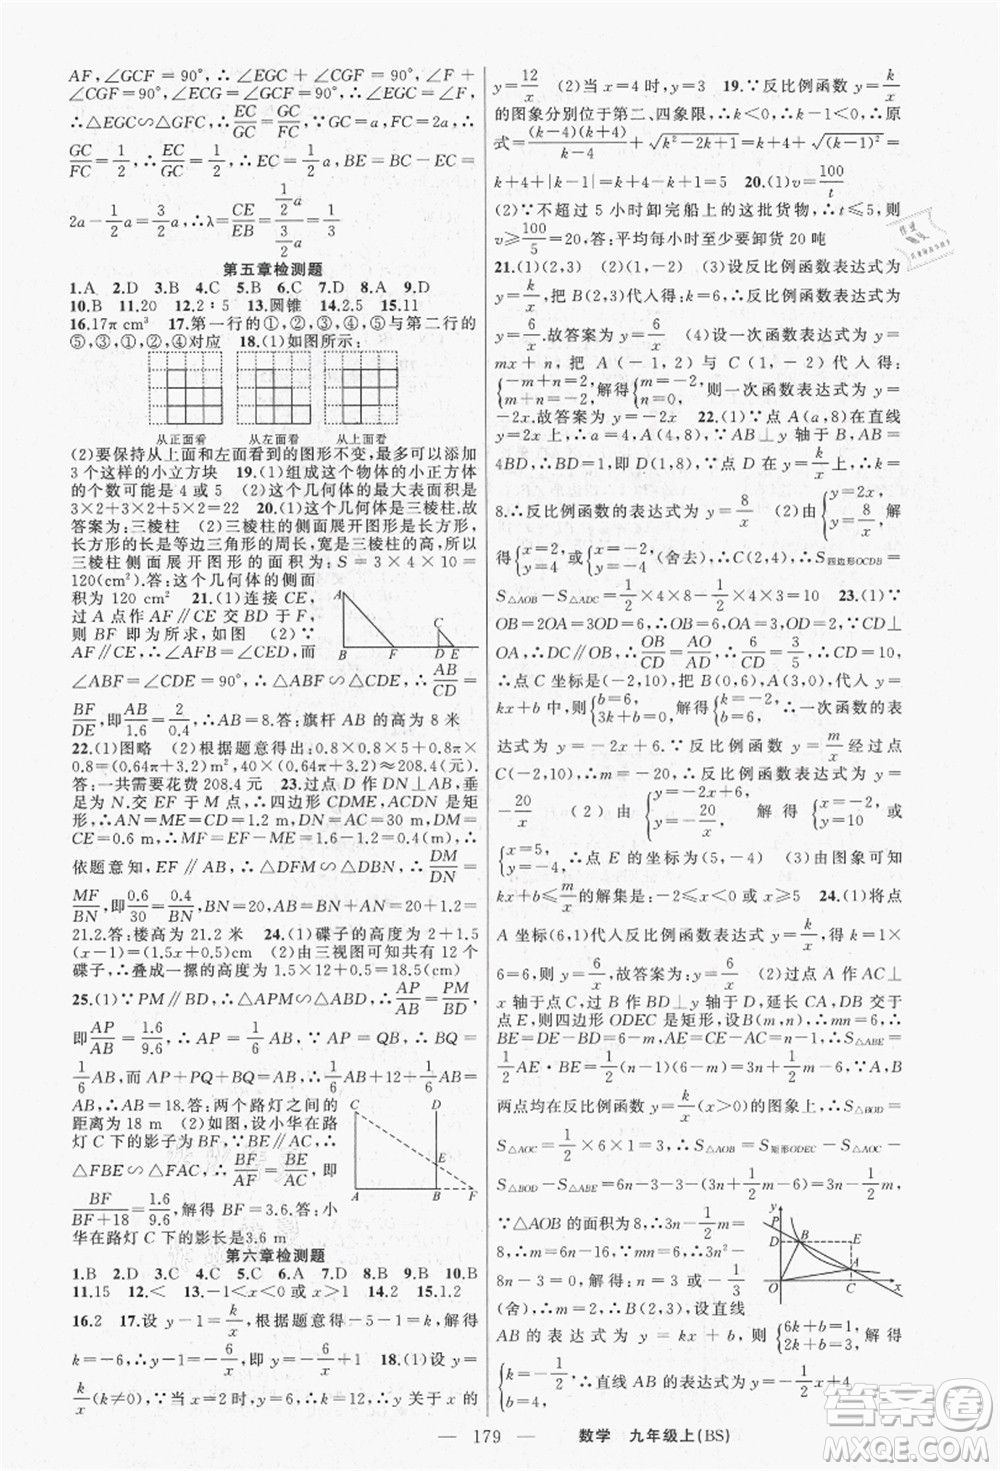 AF,∠GCF=90°,∴∠EGC+∠GCF=∠F+
∠CGF=90°,∠ECG=∠GCF=90°,∴∠EGC=∠F,
∴△EGC∽△GFC,∴EC/GC=GC/FC,∵GC=a,FC=2a,∴
GC/FC=1/2,∴EC/GC=1/2,∴EC=1/2a,BE=BC-EC=
2a-1/2a=3/2a,∴λ=CE/EB=(1/2a)/(3/2a)=1/3
第五章检测题
1.A 2.D 3.A 4.C 5.B 6.C 7.D 8.A 9.D
10.B 11.20 12.2:5 13.圆锥 14.2.5 15.11
16.17π cm³ 17.第一行的①,②,③,④,⑤与第二行的
⑤,③,①,②,④对应 18.(1)如图所示:
从正面看 从左面看 从上面看
(2)要保持从上面和左面看到的图形不变,最多可以添加
3个这样的小立方块 19.(1)组成这个物体的小正方体
的个数可能是4或5 (2)这个几何体的最大表面积是
3×2+2×3+5×2=22 20.(1)这个几何体是三棱柱.故
答案为:三棱柱 (2)三棱柱的侧面展开图形是长方形,
长方形的长是等边三角形的周长,宽是三棱柱的高,所以
三棱柱侧面展开图形的面积为:S=3×4×10=
120(cm²).答:这个几何体的侧面
积为120 cm² 21.(1)连接CE,
过A点作AF∥CE交BD于F,
则BF即为所求,如图 (2)∵
AF∥CE,∴∠AFB=∠CED,而
∠ABF=∠CDE=90°,∴△ABF∽△CDE,∴AB/CD=
BF/DE,即AB/2=2/0.4,∴AB=8.答:旗杆AB的高为8米
A B F C D E
22.(1)图略 (2)根据题意得出:0.8×0.4×5+0.8×
0.8=(0.64×5+3.2)m²,40×(0.64×5+3.2)≈208.4(元).
答:一共需要花费208.4元 23.过点D作DN⊥AB,垂
足为N,交EF于M点,∴四边形CDME,ACDN是矩
形,∴AN=ME=CD=1.2 m,DN=AC=30 m,DM=
CE=0.6 m,∴MF=EF-ME=1.6-1.2=0.4(m),∴
依题意知,EF∥AB,∴△DFM∽△DBN,∴DM/DN=
MF/BN,即0.6/30=0.4/BN,∴BN=20,AB=BN+AN=20+1.2=
21.2.答:楼高为21.2米 24.(1)碟子的高度为2+1.5
(x-1)=(1.5x+0.5)cm (2)由三视图可知共有12个
碟子,∴叠成一摞的高度=1.5×12+0.5=18.5(cm)
25.(1)∵PM∥BD,∴△APM∽△ABD,∴AP/AB=PM/BD,
即AP/AB=1.6/9.6,∴AP=1/6AB,∵AP=QB,∴QB=
1/6AB,而AP+PQ+BQ=AB,∴1/6AB+12+1/6
AB=AB,∴AB=18.答:两个路灯之间的
距离为18 m (2)如图,设小华在路
灯C下的影子为BF,∵BE∥AC,∴
△FEB∽△FAC,∴BF/AF=BE/AC,即
BF/(BF+18)=1.6/9.6,解得BF=3.6.答:小
C E A B F
华在路灯C下的影长是3.6 m
第六章检测题
1.B 2.D 3.C 4.C 5.C 6.A 7.D 8.B 9.B 10.B
11.15 12.< 13.-1<x<0或x>1 14.2 15.1.2
16.2 17.设y-1=k/x,根据题意得-5-1=k,解得
k=-6,∴y-1=-6/x,即y=-6/x+1 18.(1)设y=
k/x(k≠0),∵当x=2时,y=6,∴k=12,∴y关于x的
y=12/x (2)当x=4时,y=3 19.∵反比例函数y=k/x
的图象分别位于第二、四象限,∴k<0,∴k-1<0,∴原
式=(k-4)(k+4)/(k-4)+√(k²-2k+1)=k+4+√((k-1)²)=
k+4+|k-1|=k+4-k+1=5 20.(1)v=100/t
(2)∵不超过5小时卸完船上的这批货物,∴t≤5,则
v≥100/5=20,答:平均每小时至少要卸货20吨
21.(1)(2,3) (2)(3,2) (3)设反比例函数表达式为
y=k/x,把B(2,3)代入得:k=6,∴反比例函数表达式为
y=6/x.故答案为y=6/x (4)设一次函数表达式为y=
mx+n,把A(-1,2)与C(1,-2)代入得:
{-m+n=2, m+n=-2, 解得{m=-2, n=0, 则一次函数表达式为y=
-2x.故答案为y=-2x 22.(1)∵点A(a,8)在直线
y=2x上,∴a=4,A(4,8),∵AB⊥y轴于点B,AB=
4BD,∴BD=1,即D(1,8),∵点D在y=k/x上,∴k=
8.∴反比例函数的表达式为y=8/x (2)由{y=2x, y=8/x, 解
得{x=2, y=4 或{x=-2, y=-4(舍去),∴C(2,4),∴S四边形OCDB=
S△AOB-S△ADC=1/2×4×8-1/2×4×3=10 23.(1)∵
OB=2OA=3OD=6,∴OB=6,OA=3,OD=2,∵CD⊥
OA,∴DC∥OB,∴OB/CD=AO/AD,∴6/CD=3/5,∴CD=10,
∴点C坐标是(-2,10),B(0,6),A(3,0),∴代入y=
kx+b中,{b=6, 3k+b=0, 解得{k=-2, b=6, ∴一次函数的表
达式为y=-2x+6.∵反比例函数y=m/x经过点
C(-2,10),∴m=-20,∴反比例函数表达式为y=
-20/x (2)由{y=-2x+6, y=-20/x 解得{x=-2, y=10 或
{x=5, y=-4,∴点E的坐标为(5,-4) (3)由图象可知
kx+b≤m/x的解集是:-2≤x<0或x≥5 24.(1)将点
A坐标(6,1)代入反比例函数表达式y=k/x,得k=1×
6=6,则y=6/x,故答案为:y=6/x (2)过点A作AC⊥
x轴于点C,过B作BD⊥y轴于D,延长CA,BD交于
点E,则四边形ODEC是矩形,设B(m,n),∴mn=6,∴
BE=DE-BD=6-m,AE=CE-AC=n-1,∴S△ABE=
1/2AE·BE=1/2(n-1)(6-m)=3n-1/2n-3+1/2m,∵A,B
两点均在反比例函数y=k/x(x>0)的图象上,∴S△BOD=
S△AOC=1/2×6×1=3,∴S△AOB=S矩形ODEC-S△AOC-
S△BOD-S△ABE=6n-3-3-(3n-1/2n-3+1/2m)=3n-1/2m,
∵△AOB的面积为8,∴3n-1/2m=8,∴
y D B E A O C x
∵mn=6,∴3n²-
8n-3=0,解得:n=3或-1/3
(舍),∴m=2,∴B(2,3),设直线
AB的表达式为y=kx+b,则{6k+b=1, 2k+b=3, 解得
{k=-1/2, b=4, ∴直线AB的表达式为y=-1/2x+4
— 179 — 数学 九年级上(BS)
答案卷